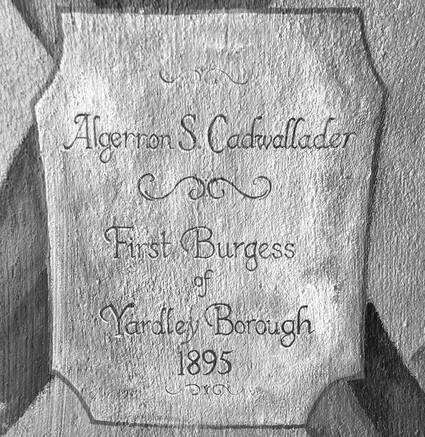 Algernon S. Cadwallader
First Burgess
of
Yardley Borough
1895